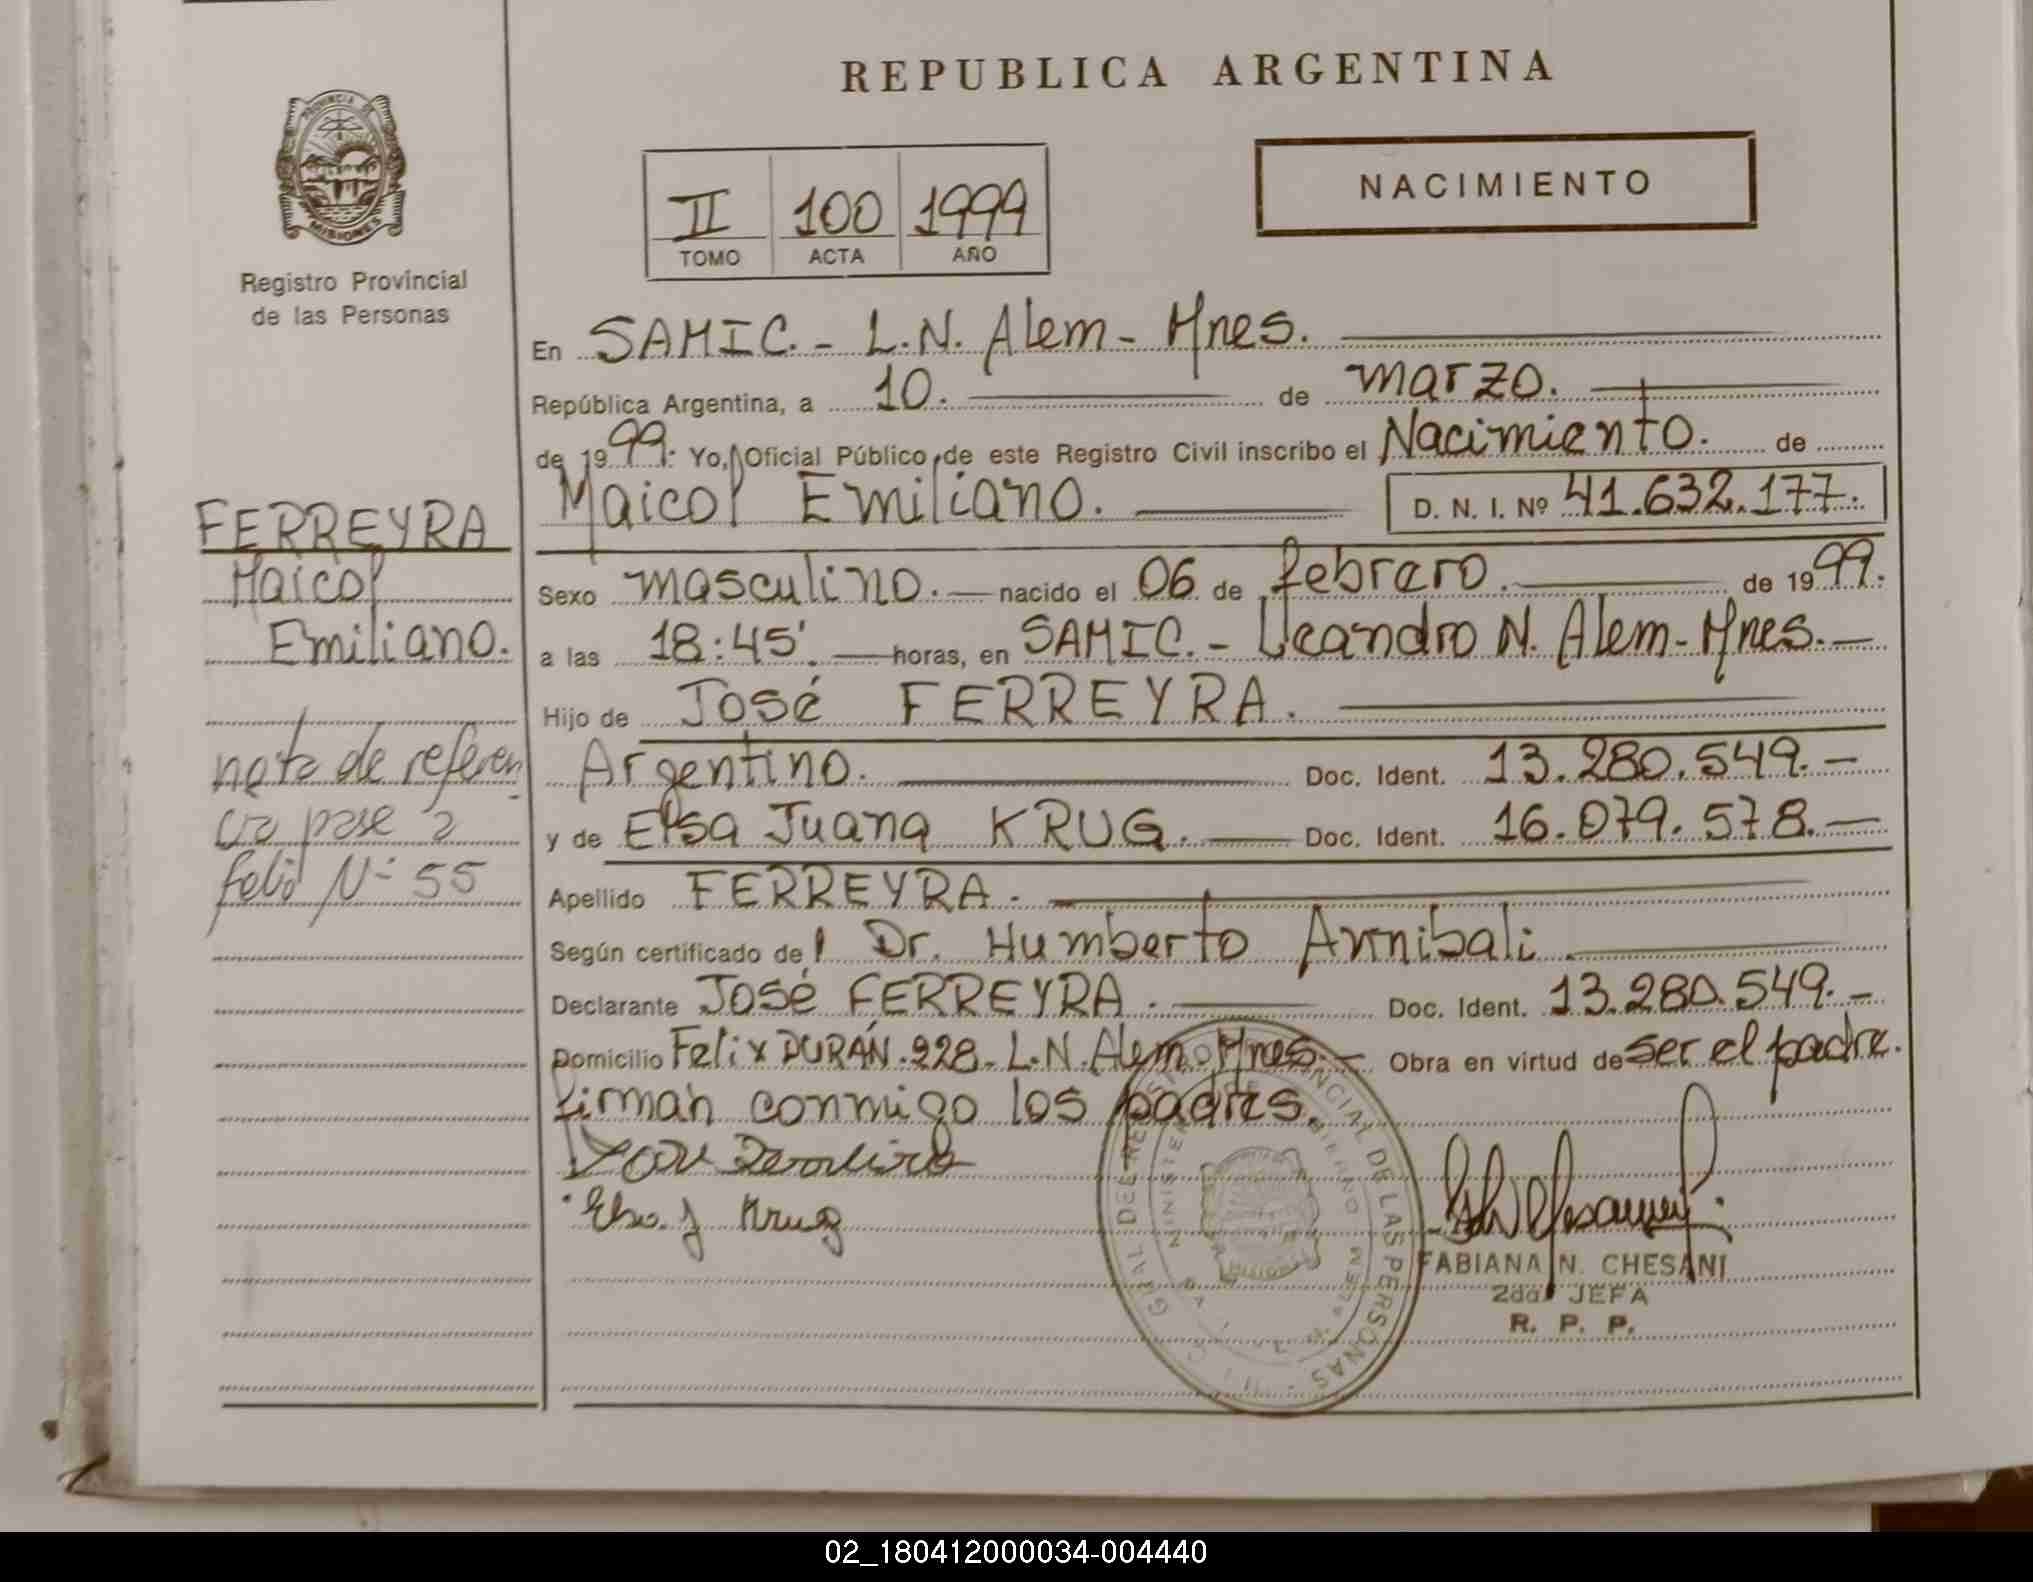 REPUBLICA ARGENTINA
PROVINCIA DE
MISIONES
Registro Provincial
de las Personas
II 100 1999
TOMO ACTA AÑO
NACIMIENTO
En SAMIC. - L.N. Alem - Mnes.
República Argentina, a 10. de marzo.
de 1999. Yo, Oficial Público de este Registro Civil inscribo el Nacimiento. de
Maicol Emiliano. D. N. I. Nº 41.632.177.
FERREYRA
Maicol
Emiliano.
Sexo masculino. nacido el 06 de febrero. de 1999.
a las 18:45'. horas, en SAMIC. - Leandro N. Alem - Mnes. -
Hijo de José FERREYRA.
Argentino. Doc. Ident. 13.280.549. -
y de Elsa Juana KRUG. Doc. Ident. 16.079.578. -
nota de referen
cia pase a
folio Nº 55
Apellido FERREYRA.
Según certificado del Dr. Humberto Annibali
Declarante José FERREYRA. Doc. Ident. 13.280.549. -
Domicilio Felix DURÁN. 228 - L.N. Alem Mnes. - Obra en virtud de ser el padre.
firman conmigo los padres.
Elsa J Krug
GRAL DEL REGISTRO PROVINCIAL DE LAS PERSONAS
MISIONES
FABIANA N. CHESANI
2da. JEFA
R. P. P.
02_180412000034-004440